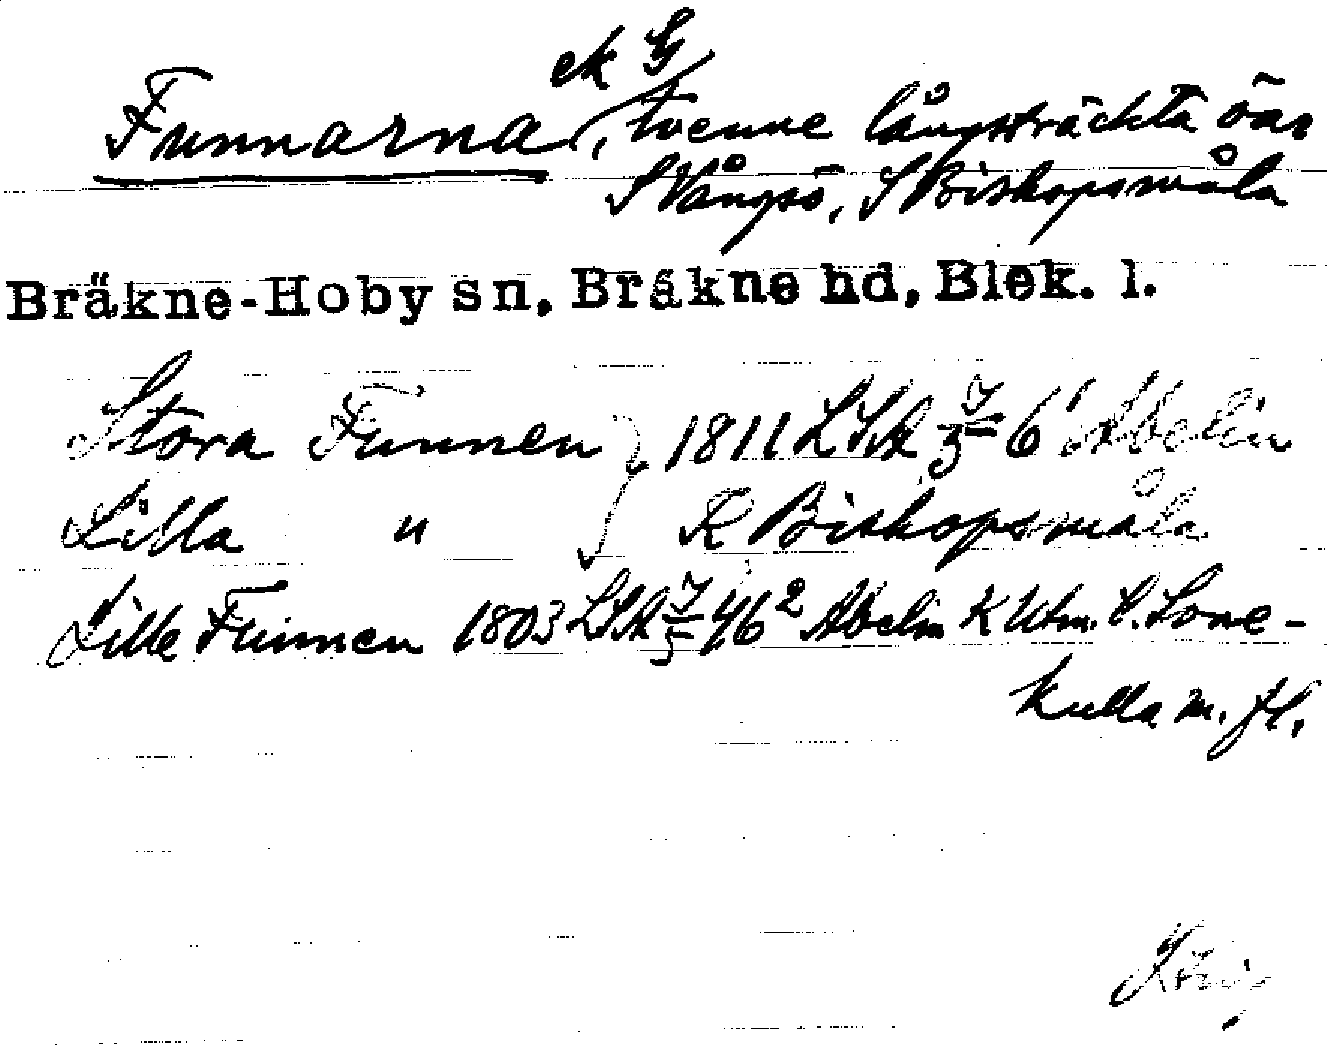 ek G
Funnarna, tvenne långsträckta öar
S Vångsö, S Biskopsmåla
Bräkne-Hoby sn, Bräkne hd, Blek. l.
Stora Funnen } 1811 LSA 7/5 6¹ Abelin
Lilla " K Biskopsmåla
Lille Funnen 1803 LSA 7/5 46² Abelin K Utm. t.
kulla m. fl.